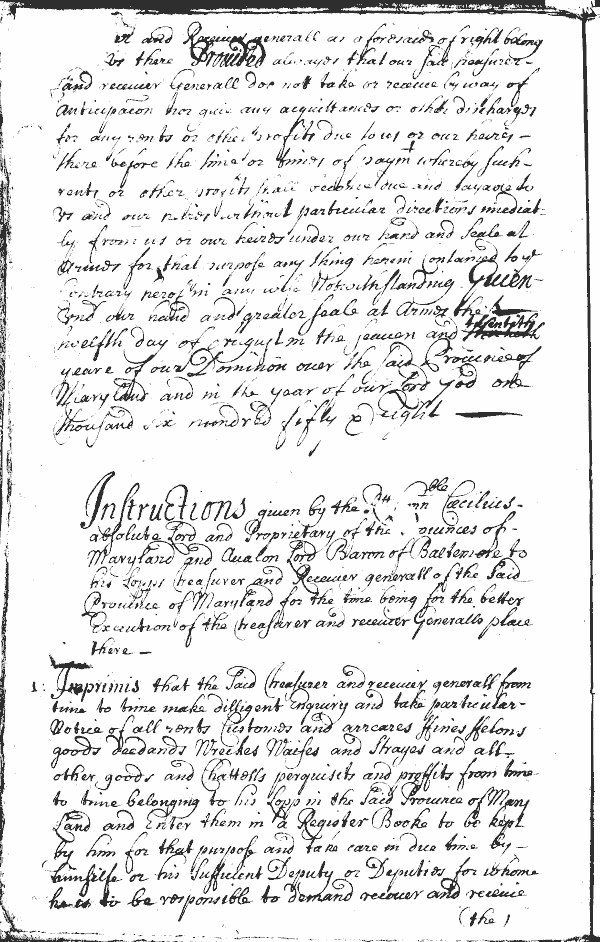 and Receiver generall as aforesaid of right belong
Vs there Provided alwayes that our said treasurer
and receiver Generall doe not take or receive by way of
Anticipacon nor give any acquittances or other discharges
for any rents or other profits due to us or our heires
there before the time or times of paymt whereby such
rents or other profits shall become due and payable to
Vs and our heires without particular directions imediat
ly from us or our heires under our hand and seale at
Armes for that purpose any thing herein contained to ye
Contrary hereof in any wise Notwithstanding Given
vnd our hand and greater seale at Armes the
twelfth day of August in the seaven and twentith
yeare of our Dominion over the said Province of
Maryland and in the year of our Lord God one
thousand six hundred fifty & eight
Instructions given by the Cæcilius
absolute Lord and Proprietary of the Provinces of
Maryland and Avalon Lord Baron of Baltemore to
his Lopps treasurer and Receiver generall of the said
Province of Maryland for the time being for the better
Execution of the treasurer and receiver Generalls place
there
1: Imprimis that the said treasurer and receiver generall from
time to time make dilligent Enquiry and take particular
Notice of all rents Customes and arreares ffines ffelons
goods deodands Wreckes Waifes and strayes and all
other goods and Chattells perquisits and proffits from time
to time belonging to his Lopp in the said Province of Mary
Land and Enter them in a Register Booke to be kept
by him for that purpose and take care in due time by
himselfe or his sufficient Deputy or Deputies for whome
he is to be responsible to demand recover and receive
(the)